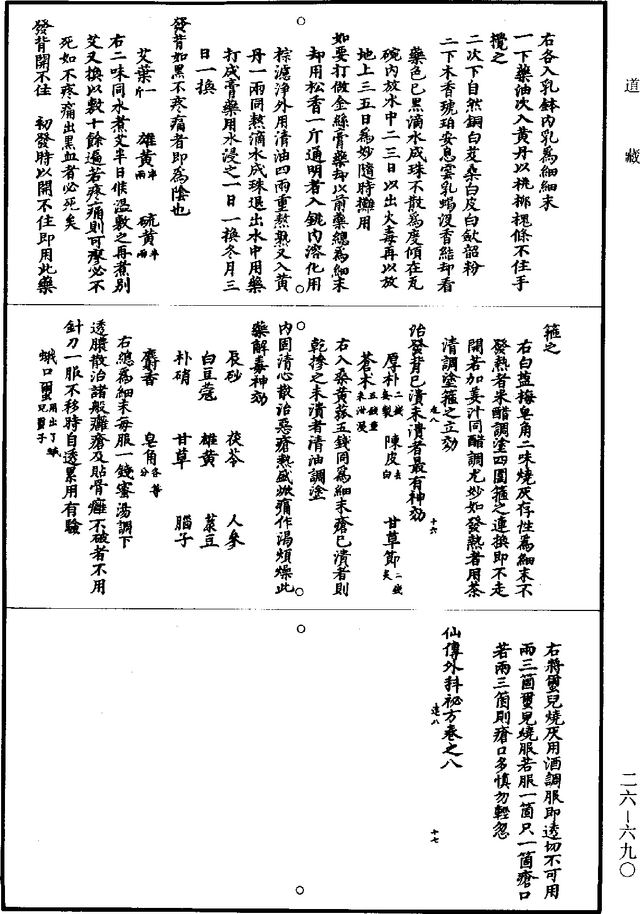 道藏
右各入乳鉢內乳為細細末
一下藥油次入黃丹以桃柳槐條不住手
攪之
二次下自然銅白芨桑白皮白歛韶粉
二下木香琥珀安息雲乳蝎沒香結却看
藥色已黑滴水成珠不散為度傾在瓦
碗內放水中二三日以出火毒再以放
地上三五日為妙隨時攤用
如要打做金絲膏藥却以前藥總為細末
却用松香一斤通明者入銚內溶化用
棕濾淨外用清油四兩重熬熟又入黃
丹一兩同熬滴水成珠退出水中用藥
打成膏藥用水浸之一日一換冬月三
日一換
發背如黑不疼痛者即為陰也
艾葉一斤 雄黃半兩 硫黃半兩
右二味同水煮艾半日候溫敷之再煮別
艾又換以數十餘遍若疼痛則可療必不
死如不疼痛出黑血者必死矣
發背開不住 初發時以開不住即用此藥
箍之
右白鹽梅皂角二味燒灰存性為細末不
發熱者米醋調塗四圍箍之連換即不走
開若加姜汁同醋調尤妙如發熱者用茶
清調塗箍之立効
治發背已潰未潰者最有神効
十六
厚朴二錢姜製 陳皮去白 甘草節二錢炙
蒼术五錢重米泔浸
右入桑黃菰五錢同為細末瘡已潰者則
乾摻之未潰者清油調塗
內固清心散治惡瘡熱盛焮痛作渴煩燥此
藥解毒神効
辰砂 茯苓 人參
白豆蔻 雄黃 菉豆
朴硝 甘草 腦子
麝香 皂角各等分
右總為細末每服一錢蜜湯調下
透膿散治諸般癰瘡及貼骨癰不破者不用
針刀一服不移時自透累用有驗
蛾口璽兒用出了蛾兒璽子
右將璽兒燒灰用酒調服即透切不可用
兩三箇璽兒燒服若服一箇只一箇瘡口
若兩三箇則瘡口多慎勿輕忽
仙傳外科祕方卷之八
遠八
十七
二六—六九〇